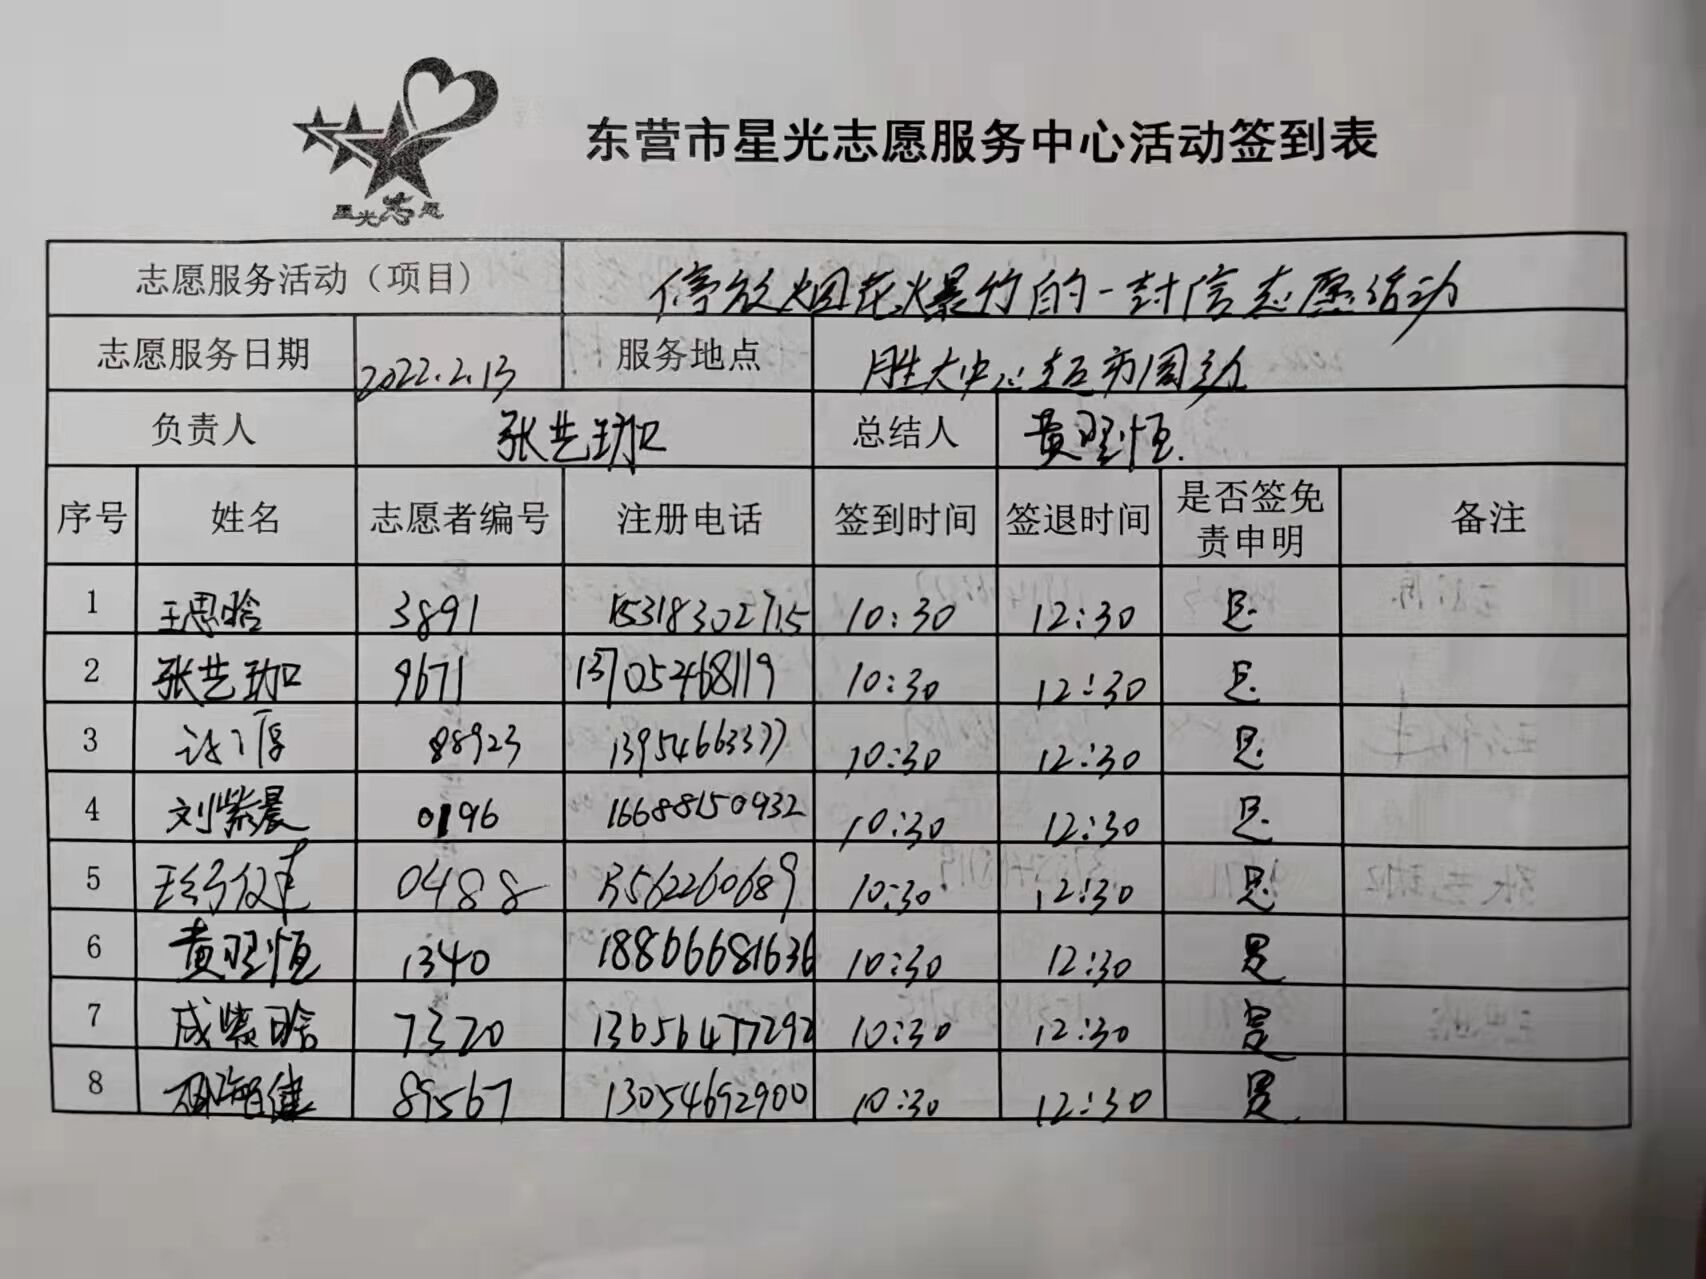 东营市星光志愿服务中心活动签到表
星光志愿
志愿服务活动（项目） 停放烟花爆竹的一封信志愿活动
志愿服务日期 2022.2.13 服务地点 胜大中心超市周边
负责人 张艺珈 总结人 黄煜恒
序号 姓名 志愿者编号 注册电话 签到时间 签退时间 是否签免责申明 备注
1 王思晗 3891 15318302715 10:30 12:30 是
2 张艺珈 9671 13705468119 10:30 12:30 是
3 88923 13954663377 10:30 12:30 是
4 刘紫晨 0196 16688150932 10:30 12:30 是
5 0488 13562260689 10:30 12:30 是
6 1340 18866681636 10:30 12:30 是
7 成紫晗 7320 13656477292 10:30 12:30 是
8 89567 13054692900 10:30 12:30 是